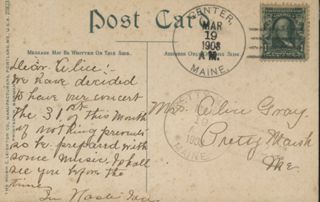 Post Card
MESSAGE MAY BE WRITTEN ON THIS SIDE.
ADDRESS ONLY ON THIS SIDE.
CENTER,
MAR
19
1908
A M.
MAINE.
Dear Alice:
We have decided
to have our concert
the 31st of this month
if nothing prevents
so be prepared with
some music. I shall
see you before the
time.
In Haste
Mrs Alice Gray.
Pretty Marsh
Me.
MAINE.